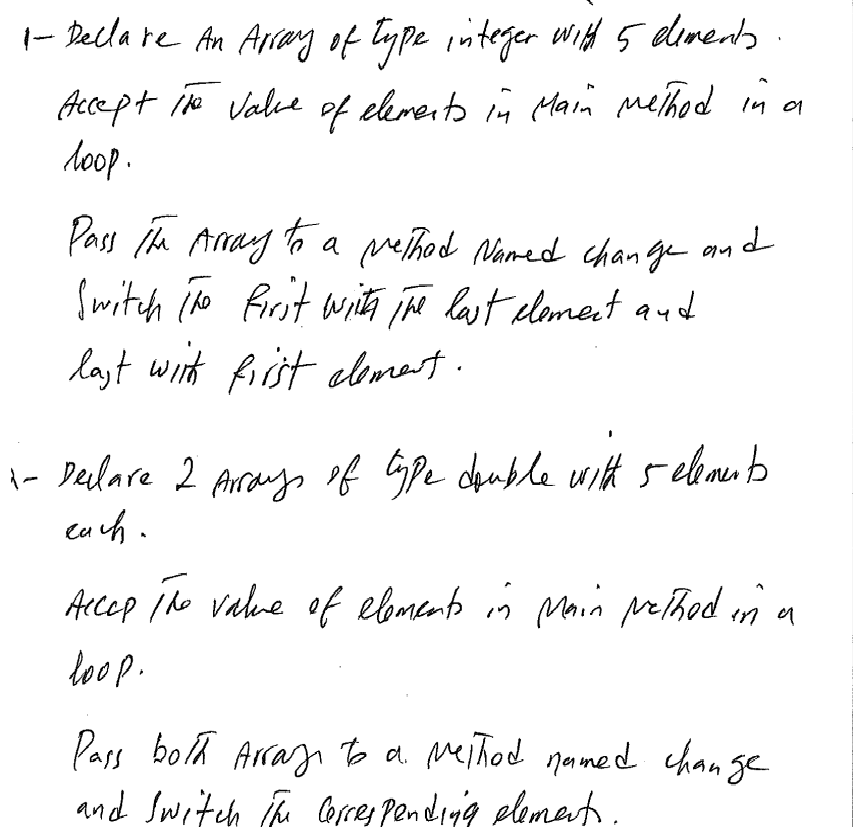 1- Declare An Array of Type integer with 5 elements.
Accept the Value of elements in Main Method in a
loop.
Pass the Array to a Method Named change and
Switch the first with the last element and
last with first element.
2- Declare 2 Arrays of Type double with 5 elements
each.
Accep the value of elements in Main Method in a
loop.
Pass both Arrays to a Method named change
and Switch the Correspending elements.